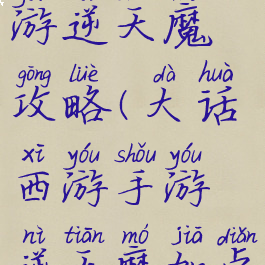 游逆天魔
gōng lüè dà huà
攻略(大话
xī yóu shǒu yóu
西游手游
nì tiān mó jiā diǎn
逆天魔加点